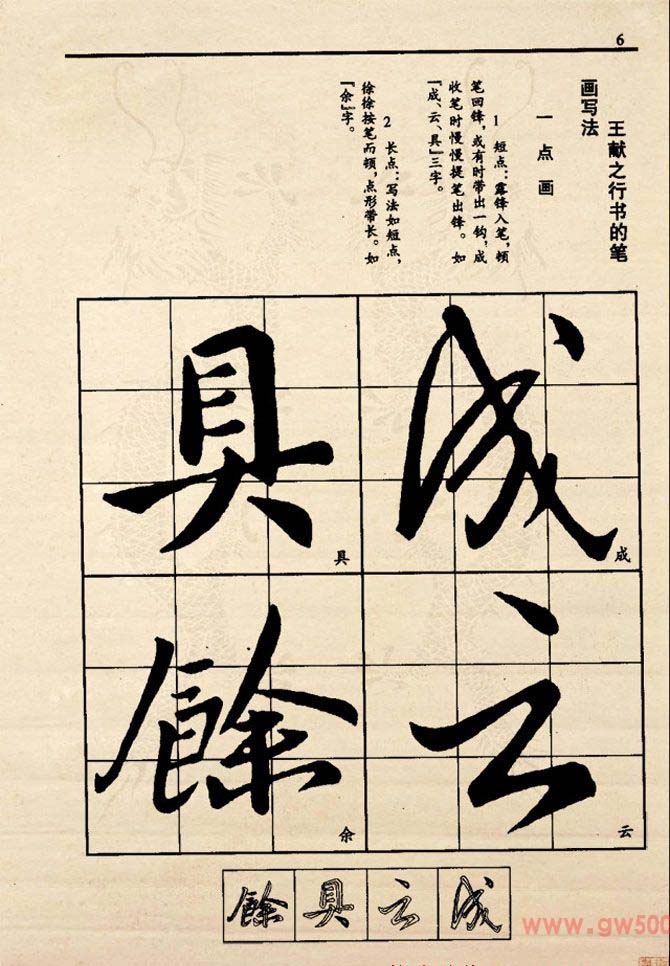 6
王献之行书的笔
画写法
一 点 画
1 短点：露锋入笔，顿
笔回锋，或有时带出一钩，成
收笔时慢慢提笔出锋。 如
『成、云、具』三字。
2 长点：写法如短点，
徐徐按笔而顿，点形带长。如
『余』字。
成
成
云
云
具
具
餘
余
成
云
具
餘
www.gw500